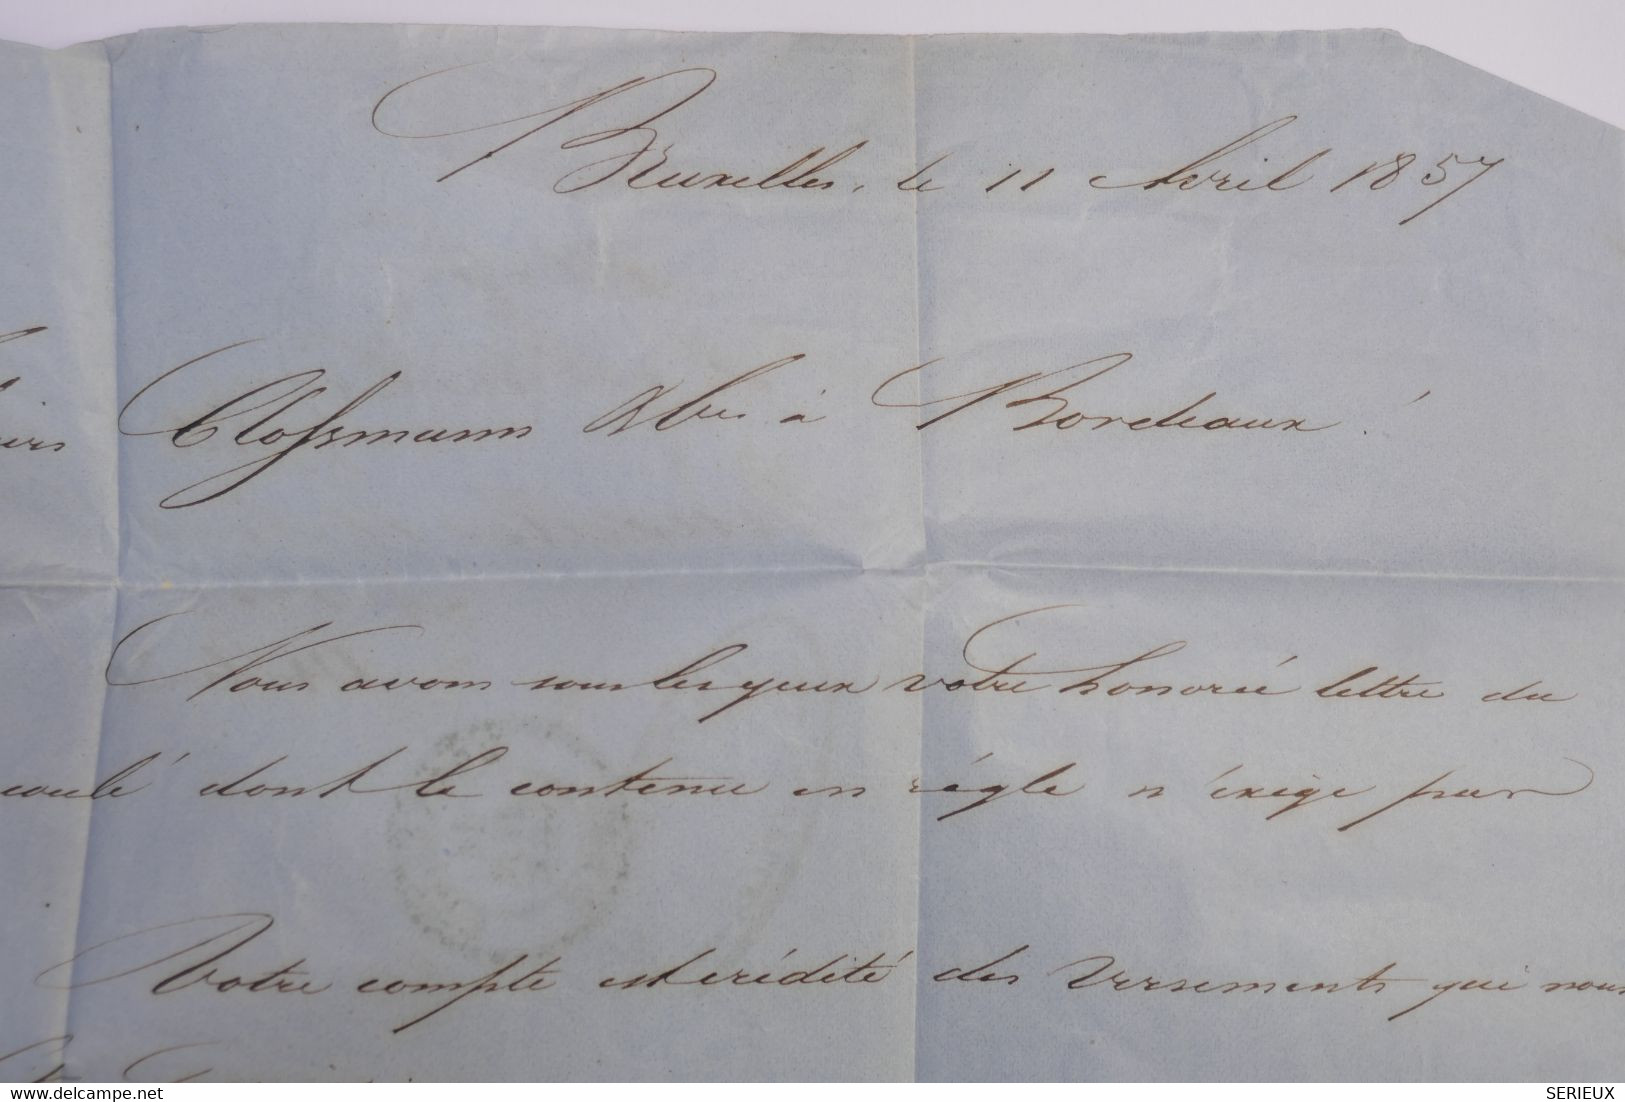 Bruxelles, le 11 Avril 1857
Clossmann & Cie à Bordeaux.
Nous avons sous les yeux votre honorée lettre du
coulé dont le contenu en règle n'exige pas
Votre compte est crédité des versements qui nous
delcampe.net
SERIEUX